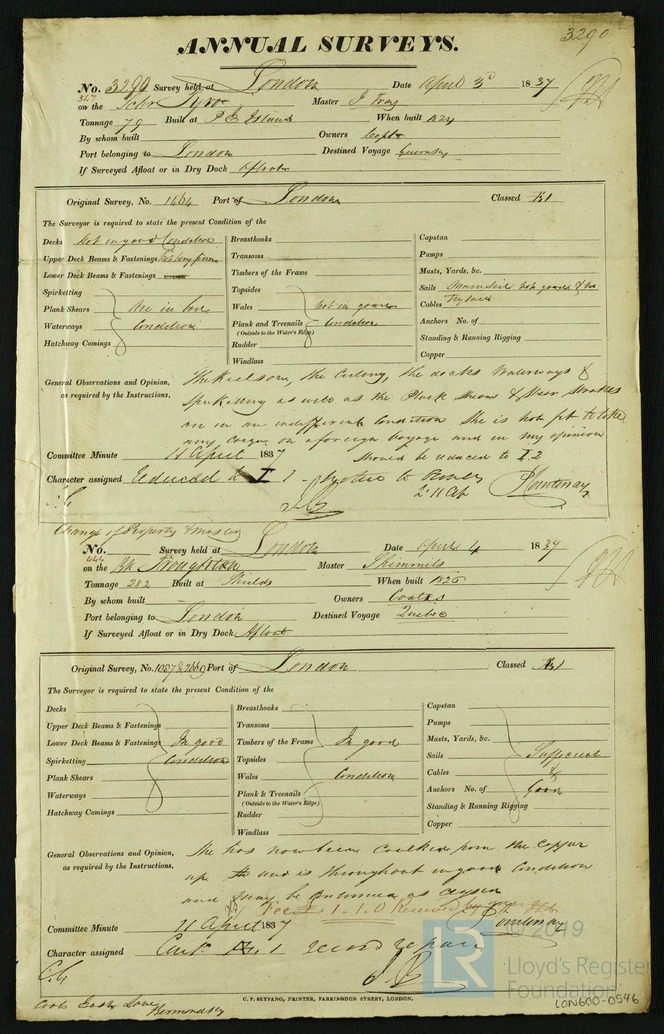 3290
ANNUAL SURVEYS.
No. 3290 Survey held at London Date April 3d 1837
547 on the Schr Tyro Master J Fray
Tonnage 79 Built at P E Island When built 1824
By whom built Owners Capt
Port belonging to London Destined Voyage Guernsey
If Surveyed Afloat or in Dry Dock Afloat
Original Survey, No. 1464 Port of London Classed Æ1
The Surveyor is required to state the present Condition of the
Decks Not in good Condition
Upper Deck Beams & Fastenings
Lower Deck Beams & Fastenings
Spirketting
Plank Shears are in
Waterways Condition
Hatchway Comings
Breasthooks
Transoms
Timbers of the Frame
Topsides
Wales not in good
Plank and Treenails Condition
(Outside to the Water's Edge)
Rudder
Windlass
Capstan
Pumps
Masts, Yards, &c.
Sails Mainsail not good &
Cables
Anchors No. of
Standing & Running Rigging
Copper
General Observations and Opinion, The Keelson, the Ceiling, the decks Waterways &
as required by the Instructions, Spirketting as well as the Plank Shears & Shear Strakes
are in an indifferent Condition She is not fit to take
any Cargo on a foreign Voyage and in my opinion
Committee Minute 11 April 1837 should be reduced to I.2
Character assigned Reduced to I 1 - notice to Owners
2d 11 Ap P Courtenay
Change of Property & master
No. Survey held at London Date April 4 1837
446 on the Bk Stoughton Master Skimmils
Tonnage 282 Built at Shields When built 1826
By whom built Owners Coates
Port belonging to London Destined Voyage Quebec
If Surveyed Afloat or in Dry Dock Afloat
Original Survey, No. 1087 & 2669 Port of London Classed Æ1
The Surveyor is required to state the present Condition of the
Decks
Upper Deck Beams & Fastenings
Lower Deck Beams & Fastenings In good
Spirketting Condition
Plank Shears
Waterways
Hatchway Comings
Breasthooks
Transoms
Timbers of the Frame In good
Topsides
Wales Condition
Plank & Treenails
(Outside to the Water's Edge)
Rudder
Windlass
Capstan
Pumps
Masts, Yards, &c.
Sails Sufficient
Cables &
Anchors No. of Good
Standing & Running Rigging
Copper
General Observations and Opinion, She has now been Caulked from the Copper
as required by the Instructions, up and is throughout in good Condition
and may be Continued as
Fee £1.1.0 Received
Committee Minute 11 April 1837 P Courtenay
Character assigned Cont. Æ 1 record repair
© 2019
LR
Lloyd's Register
Foundation
C. F. SEYFANG, PRINTER, FARRINGDON STREET, LONDON.
LON600-0546
Bermondsey